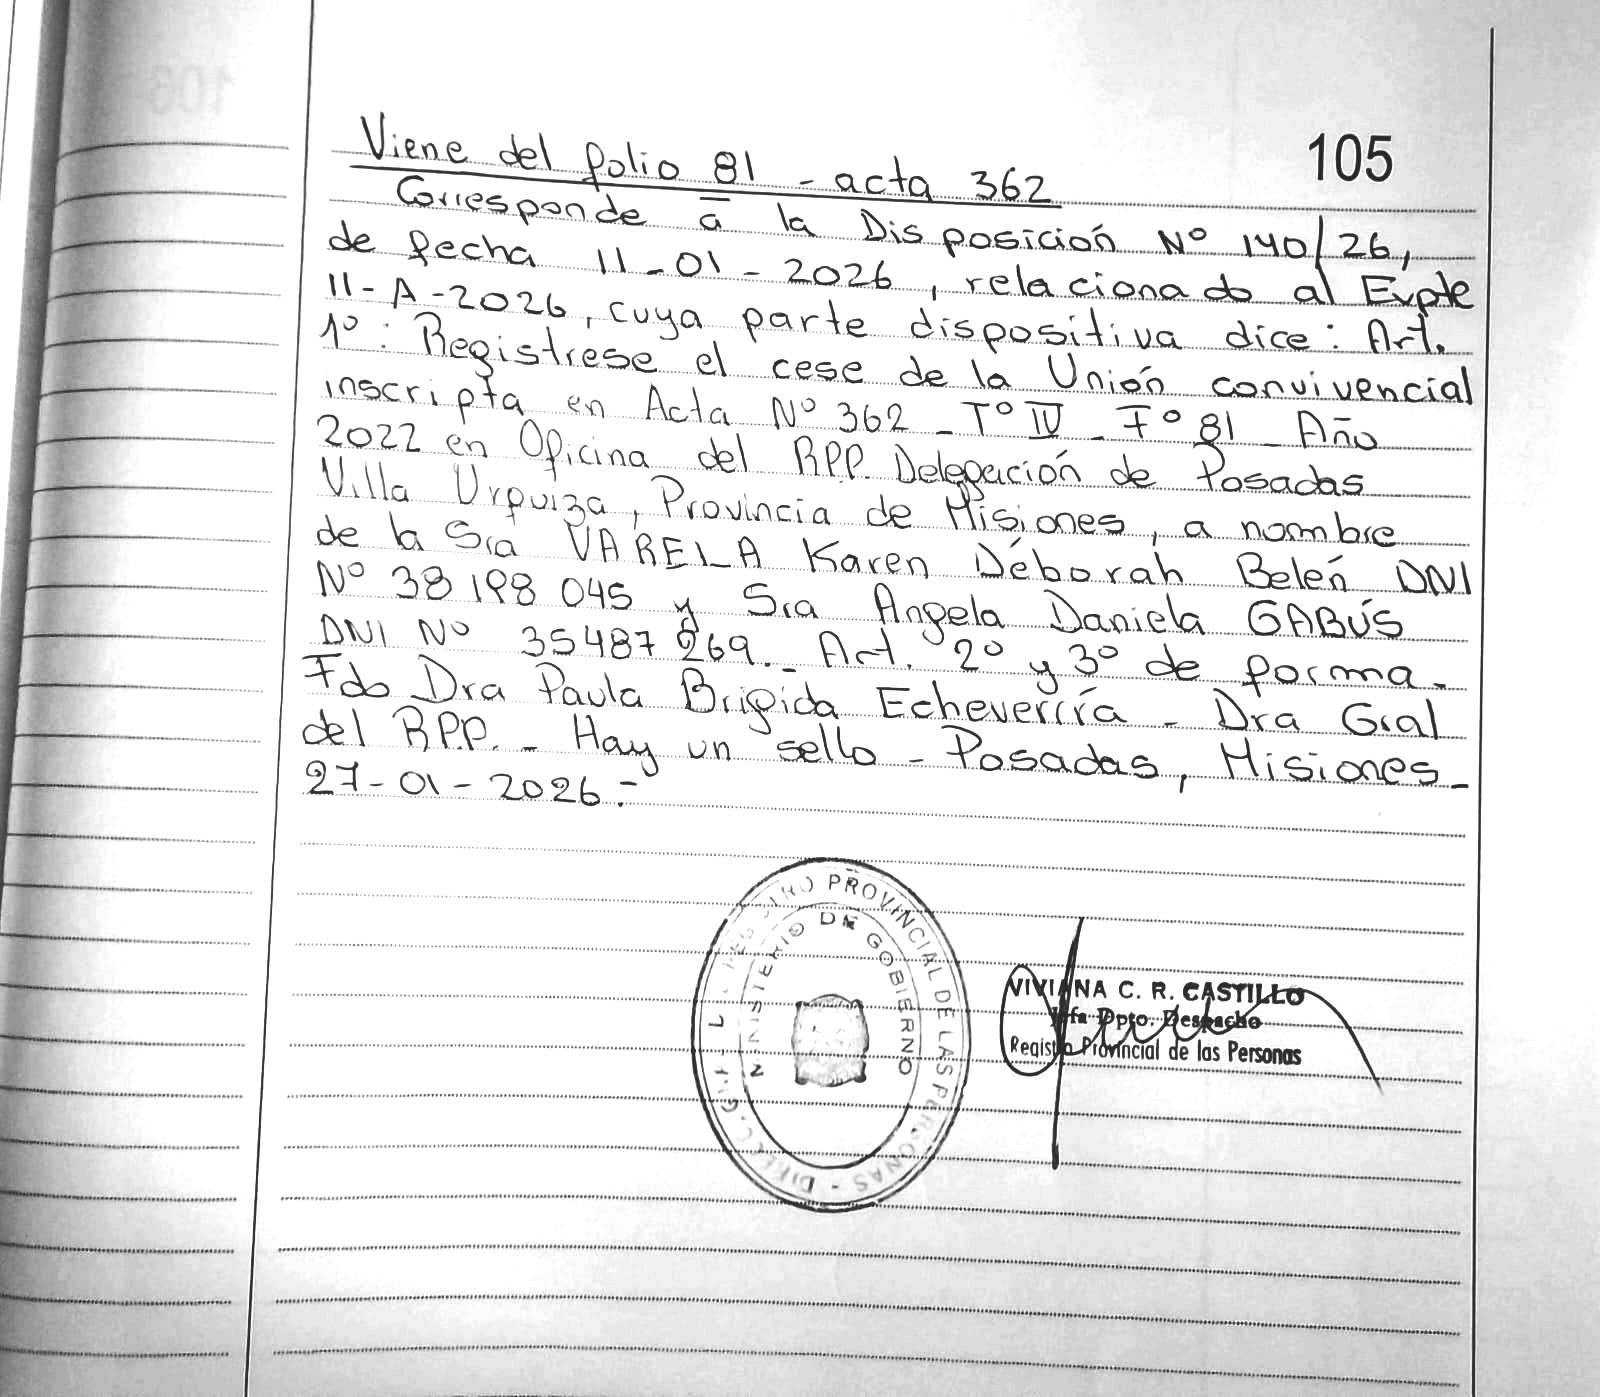 105
Viene del folio 81 - acta 362
Corresponde a la Disposición Nº 140/26,
de fecha 11-01-2026, relacionado al Expte
11-A-2026, cuya parte dispositiva dice: Art.
1º: Registrese el cese de la Unión convivencial
inscripta en Acta Nº 362 - Tº IV - Fº 81 - Año
2022 en Oficina del RPP. Delegación de Posadas
Villa Urquiza, Provincia de Misiones, a nombre
de la Sra VARELA Karen Déborah Belén DNI
Nº 38198045 y Sra Angela Daniela GABÚS
DNI Nº 35487269.- Art. 2º y 3º de forma.
Fdo Dra Paula Brigida Echeverría - Dra Gral
del RPP. - Hay un sello - Posadas, Misiones -
27-01-2026.-
PROVINCIAL DE LAS PERSONAS -
MINISTERIO DE GOBIERNO
VIVIANA C. R. CASTILLO
Jefa Dpto. Despacho
Registro Provincial de las Personas